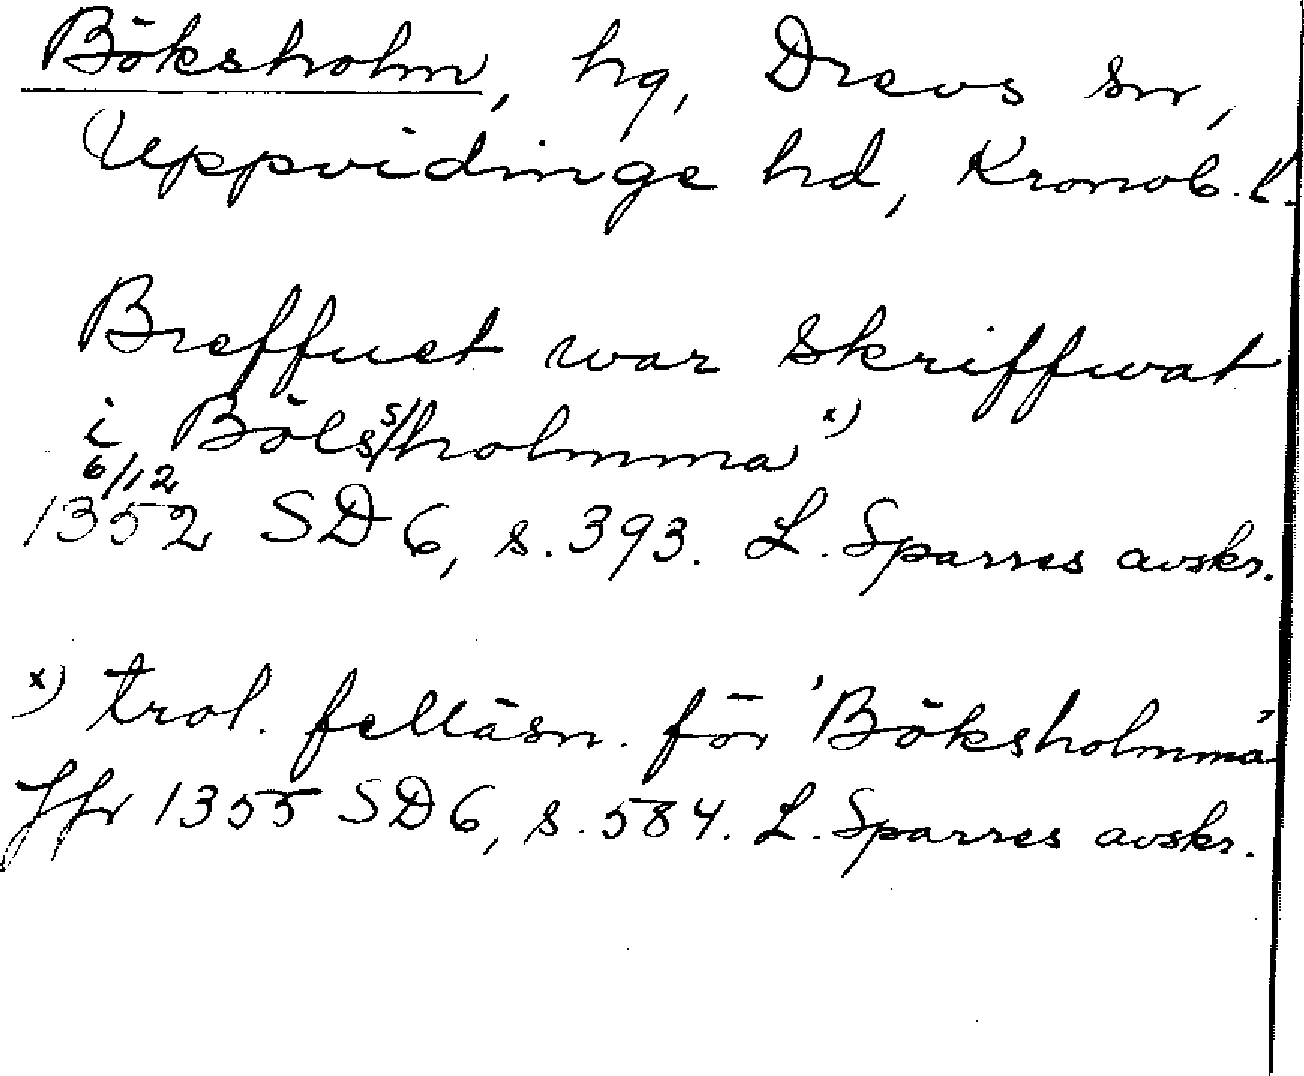 Böksholm, hg, Drevs sn,
Uppvidinge hd, Kronob. l.
Breffuet war skriffwat
i Bölss/holmma x)
6/12
1352 SD 6, s. 393. L. Sparres avskr.
x) trol. felläsn. för 'Böksholmma'
Jfr 1355 SD 6, s. 584. L. Sparres avskr.